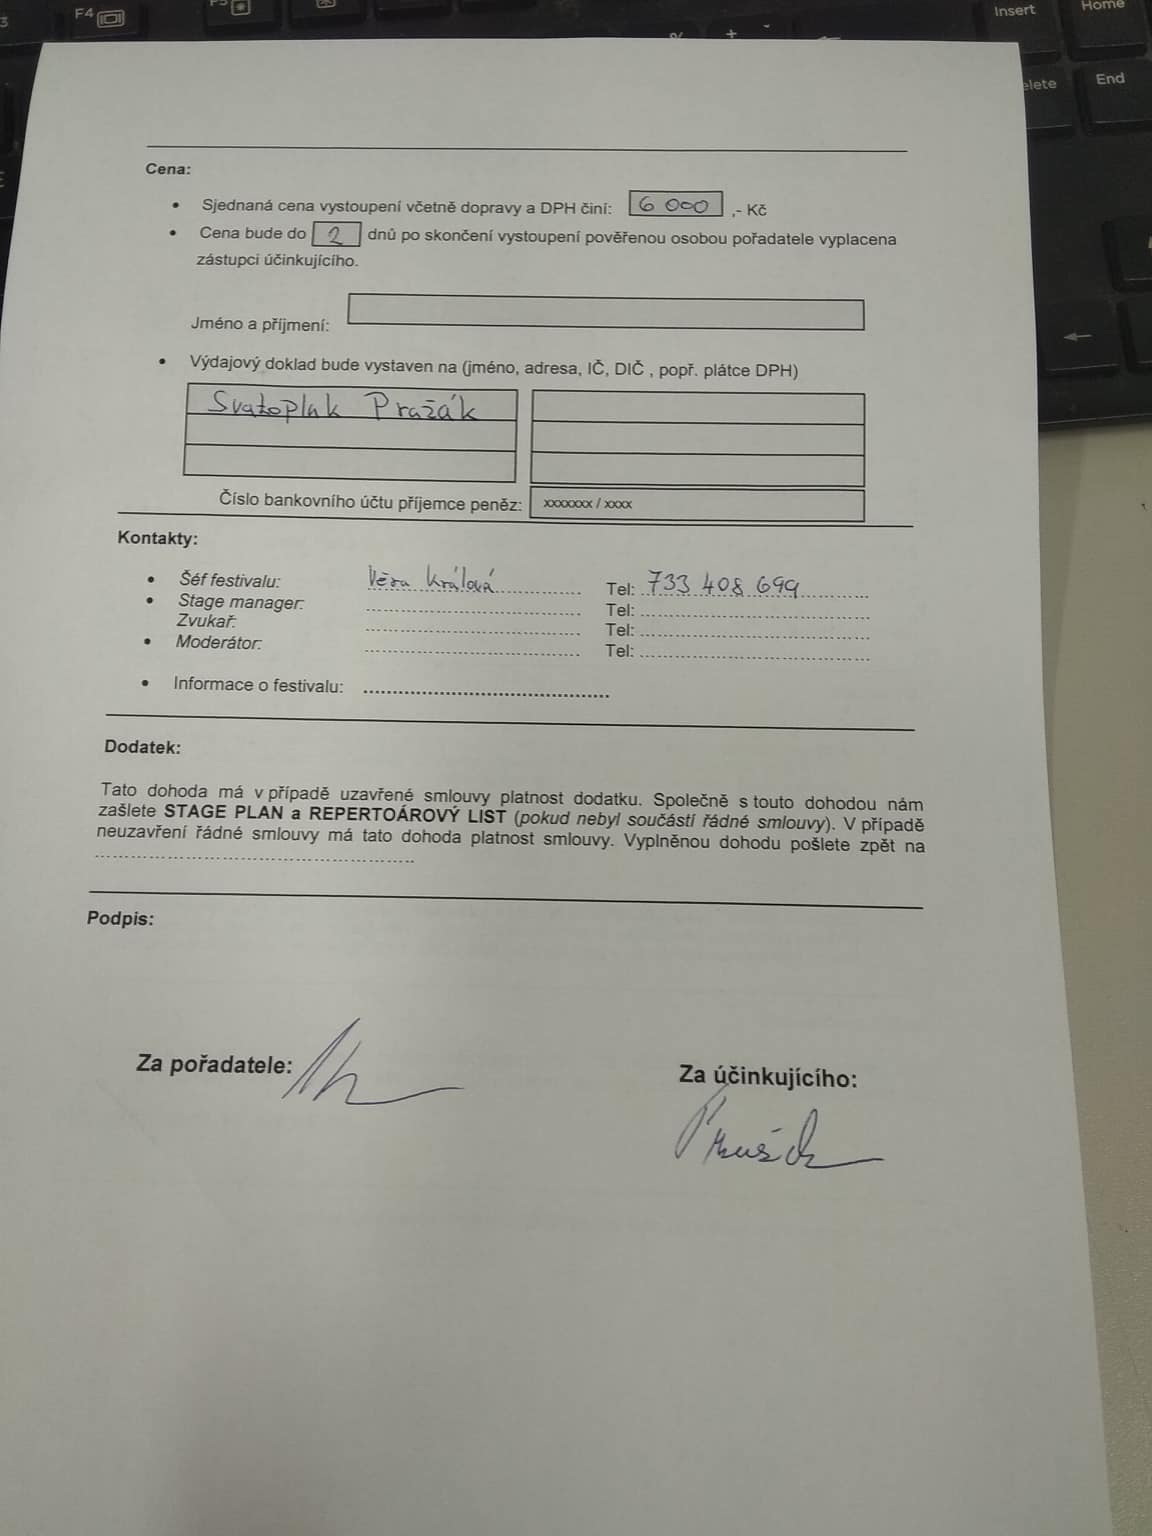 F4
Insert
Home
elete
End
Cena:
• Sjednaná cena vystoupení včetně dopravy a DPH činí: 6 000 ,- Kč
• Cena bude do 2 dnů po skončení vystoupení pověřenou osobou pořadatele vyplacena
zástupci účinkujícího.
Jméno a příjmení:
• Výdajový doklad bude vystaven na (jméno, adresa, IČ, DIČ , popř. plátce DPH)
Svatopluk Pražák
Číslo bankovního účtu příjemce peněz: xxxxxxx / xxxx
Kontakty:
• Šéf festivalu: Věra Králová Tel: 733 408 699
• Stage manager: Tel:
Zvukař: Tel:
• Moderátor: Tel:
• Informace o festivalu:
Dodatek:
Tato dohoda má v případě uzavřené smlouvy platnost dodatku. Společně s touto dohodou nám
zašlete STAGE PLAN a REPERTOÁROVÝ LIST (pokud nebyl součástí řádné smlouvy). V případě
neuzavření řádné smlouvy má tato dohoda platnost smlouvy. Vyplněnou dohodu pošlete zpět na
Podpis:
Za pořadatele:
Za účinkujícího: